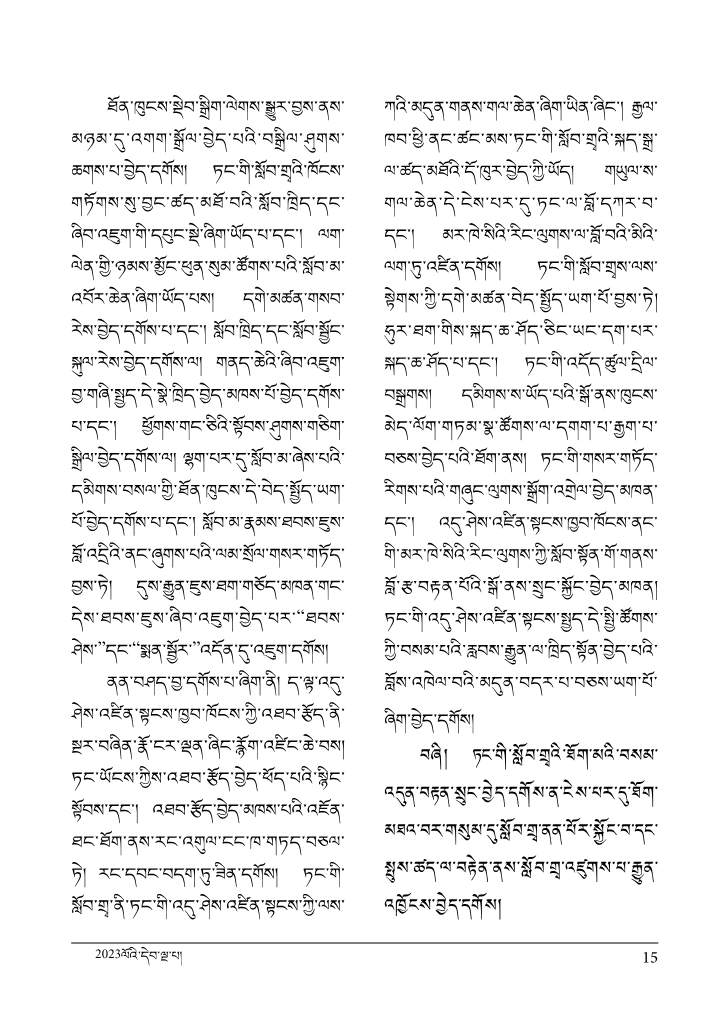 ཐོན་ཁུངས་སྡེབ་སྒྲིག་ལེགས་སྒྱུར་བྱས་ནས་
མཉམ་དུ་འགག་སྒྲོལ་བྱེད་པའི་བསྒྲིལ་ཤུགས་
ཆགས་པ་བྱེད་དགོས། ཏང་གི་སློབ་གྲྭའི་ཁོངས་
གཏོགས་སུ་བྱང་ཚད་མཐོ་བའི་སློབ་ཁྲིད་དང་
ཞིབ་འཇུག་གི་དཔུང་སྡེ་ཞིག་ཡོད་པ་དང་། ལག་
ལེན་གྱི་ཉམས་མྱོང་ཕུན་སུམ་ཚོགས་པའི་སློབ་མ་
འབོར་ཆེན་ཞིག་ཡོད་པས། དགེ་མཚན་གསབ་
རེས་བྱེད་དགོས་པ་དང་། སློབ་ཁྲིད་དང་སློབ་སྦྱོང་
སྐུལ་རེས་བྱེད་དགོས་ལ། གནད་ཆེའི་ཞིབ་འཇུག་
བྱ་གཞི་སྤྱད་དེ་སྣེ་ཁྲིད་བྱེད་མཁས་པོ་བྱེད་དགོས་
པ་དང་། ཕྱོགས་གང་ཅིའི་སྟོབས་ཤུགས་གཅིག་
སྒྲིལ་བྱེད་དགོས་ལ། ལྷག་པར་དུ་སློབ་མ་ཞེས་པའི་
དམིགས་བསལ་གྱི་ཐོན་ཁུངས་དེ་བེད་སྤྱོད་ཡག་
པོ་བྱེད་དགོས་པ་དང་། སློབ་མ་རྣམས་ཐབས་ཇུས་
བློ་འདྲིའི་ནང་ཞུགས་པའི་ལམ་སྲོལ་གསར་གཏོད་
བྱས་ཏེ། དུས་རྒྱུན་ཇུས་ཐག་གཅོད་མཁན་གང་
དེས་ཐབས་ཇུས་ཞིབ་འཇུག་བྱེད་པར་“ཐབས་
ཤེས་”དང་“སྨན་སྦྱོར་”འདོན་དུ་འཇུག་དགོས།
ནན་བཤད་བྱ་དགོས་པ་ཞིག་ནི། ད་ལྟ་འདུ་
ཤེས་འཛིན་སྟངས་ཁྱབ་ཁོངས་ཀྱི་འཐབ་རྩོད་ནི་
སྔར་བཞིན་རྣོ་ངར་ལྡན་ཞིང་རྙོག་འཛིང་ཆེ་བས།
ཏང་ཡོངས་ཀྱིས་འཐབ་རྩོད་བྱེད་ཕོད་པའི་སྙིང་
སྟོབས་དང་། འཐབ་རྩོད་བྱེད་མཁས་པའི་འཇོན་
ཐང་ཐོག་ནས་རང་འགུལ་ངང་ཁ་གཏད་བཅལ་
ཏེ། རང་དབང་བདག་ཏུ་ཟིན་དགོས། ཏང་གི་
སློབ་གྲྭ་ནི་ཏང་གི་འདུ་ཤེས་འཛིན་སྟངས་ཀྱི་ལས་
ཀའི་མདུན་གནས་གལ་ཆེན་ཞིག་ཡིན་ཞིང་། རྒྱལ་
ཁབ་ཕྱི་ནང་ཚང་མས་ཏང་གི་སློབ་གྲྭའི་སྐད་སྒྲ་
ལ་ཚད་མཐོའི་དོ་ཁུར་བྱེད་ཀྱི་ཡོད། གཡུལ་ས་
གལ་ཆེན་དེ་ངེས་པར་དུ་ཏང་ལ་བློ་དཀར་བ་
དང་། མར་ཁེ་སིའི་རིང་ལུགས་ལ་བློ་བའི་མིའི་
ལག་ཏུ་འཛིན་དགོས། ཏང་གི་སློབ་གྲྭས་ལས་
སྟེགས་ཀྱི་དགེ་མཚན་བེད་སྤྱོད་ཡག་པོ་བྱས་ཏེ།
ཧུར་ཐག་གིས་སྐད་ཆ་ཤོད་ཅིང་ཡང་དག་པར་
སྐད་ཆ་ཤོད་པ་དང་། ཏང་གི་འདོད་ཚུལ་དྲིལ་
བསྒྲགས། དམིགས་ས་ཡོད་པའི་སྒོ་ནས་ཁུངས་
མེད་ལོག་གཏམ་སྣ་ཚོགས་ལ་དགག་པ་རྒྱག་པ་
བཅས་བྱེད་པའི་ཐོག་ནས། ཏང་གི་གསར་གཏོད་
རིགས་པའི་གཞུང་ལུགས་སྒྲོག་འགྲེལ་བྱེད་མཁན་
དང་། འདུ་ཤེས་འཛིན་སྟངས་ཁྱབ་ཁོངས་ནང་
གི་མར་ཁེ་སིའི་རིང་ལུགས་ཀྱི་སློབ་སྟོན་གོ་གནས་
བློ་རྩ་བརྟན་པོའི་སྒོ་ནས་སྲུང་སྐྱོང་བྱེད་མཁན།
ཏང་གི་འདུ་ཤེས་འཛིན་སྟངས་སྤྱད་དེ་སྤྱི་ཚོགས་
ཀྱི་བསམ་པའི་རླབས་རྒྱུན་ལ་ཁྲིད་སྟོན་བྱེད་པའི་
བློས་འཁེལ་བའི་མདུན་བདར་པ་བཅས་ཡག་པོ་
ཞིག་བྱེད་དགོས།
བཞི། ཏང་གི་སློབ་གྲྭའི་ཐོག་མའི་བསམ་
འདུན་བརྟན་སྲུང་བྱེད་དགོས་ན་ངེས་པར་དུ་ཐོག་
མཐའ་བར་གསུམ་དུ་སློབ་གྲྭ་ནན་པོར་སྐྱོང་བ་དང་
སྤུས་ཚད་ལ་བརྟེན་ནས་སློབ་གྲྭ་འཛུགས་པ་རྒྱུན་
འཁྱོངས་བྱེད་དགོས།
2023ལོའི་དེབ་ལྔ་པ།
15